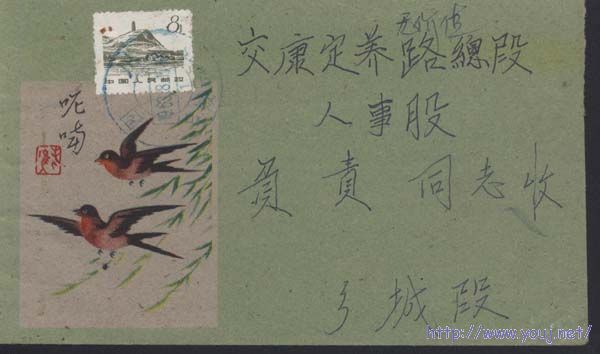 8分
中国人民邮政
呢喃
交康定养路總段
人事股
負責同志收
乡城段
http://www.youj.net/